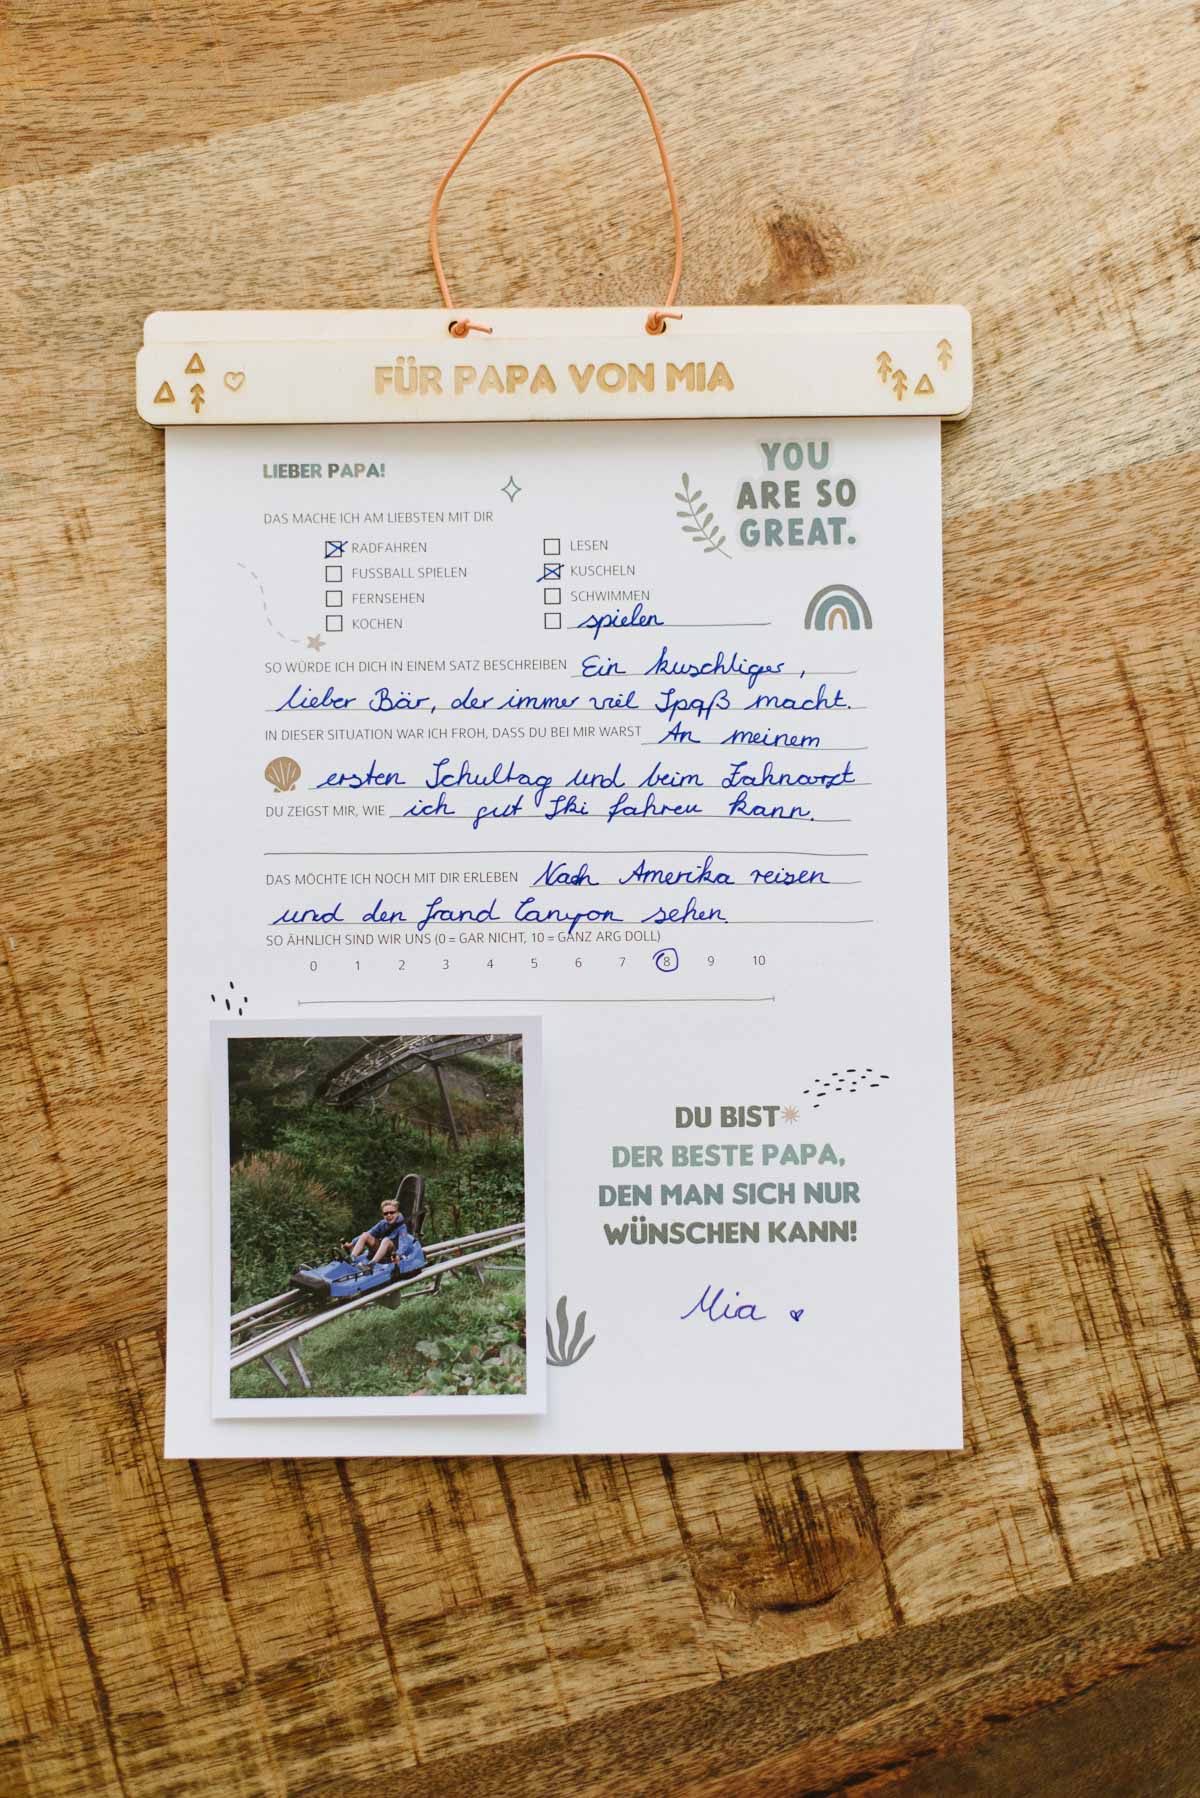 FÜR PAPA VON MIA
LIEBER PAPA!
YOU
ARE SO
GREAT.
DAS MACHE ICH AM LIEBSTEN MIT DIR
RADFAHREN
FUSSBALL SPIELEN
FERNSEHEN
KOCHEN
LESEN
KUSCHELN
SCHWIMMEN
spielen
SO WÜRDE ICH DICH IN EINEM SATZ BESCHREIBEN Ein kuschliger,
lieber Bär, der immer viel Spaß macht.
IN DIESER SITUATION WAR ICH FROH, DASS DU BEI MIR WARST An meinem
ersten Schultag und beim Zahnarzt
DU ZEIGST MIR, WIE ich gut Ski fahren kann.
DAS MÖCHTE ICH NOCH MIT DIR ERLEBEN Nach Amerika reisen
und den Grand Canyon sehen.
SO ÄHNLICH SIND WIR UNS (0 = GAR NICHT, 10 = GANZ ARG DOLL)
0 1 2 3 4 5 6 7 8 9 10
DU BIST
DER BESTE PAPA,
DEN MAN SICH NUR
WÜNSCHEN KANN!
Mia